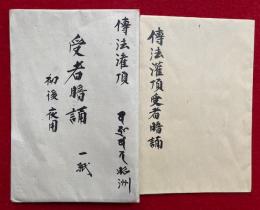 傳法灌頂
受者暗誦
一紙
初後夜用
傳法灌頂受者暗誦